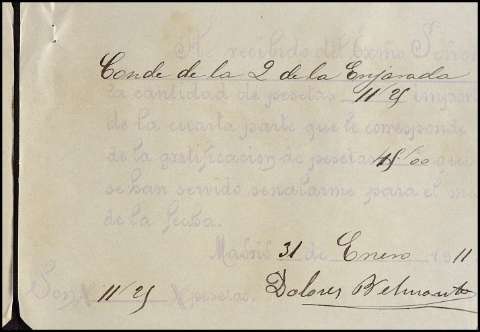 He recibido del Excmo Señor
Conde de la 2 de la Enjarada
la cantidad de pesetas 11'25 impor
de la cuarta parte que le corresponde
de la gratificación de pesetas 45'00 que
se han servido señalarme para el m
de la fecha.
Madrid 31 de Enero 1911
Son 11'25 pesetas. Dolores Belmonte